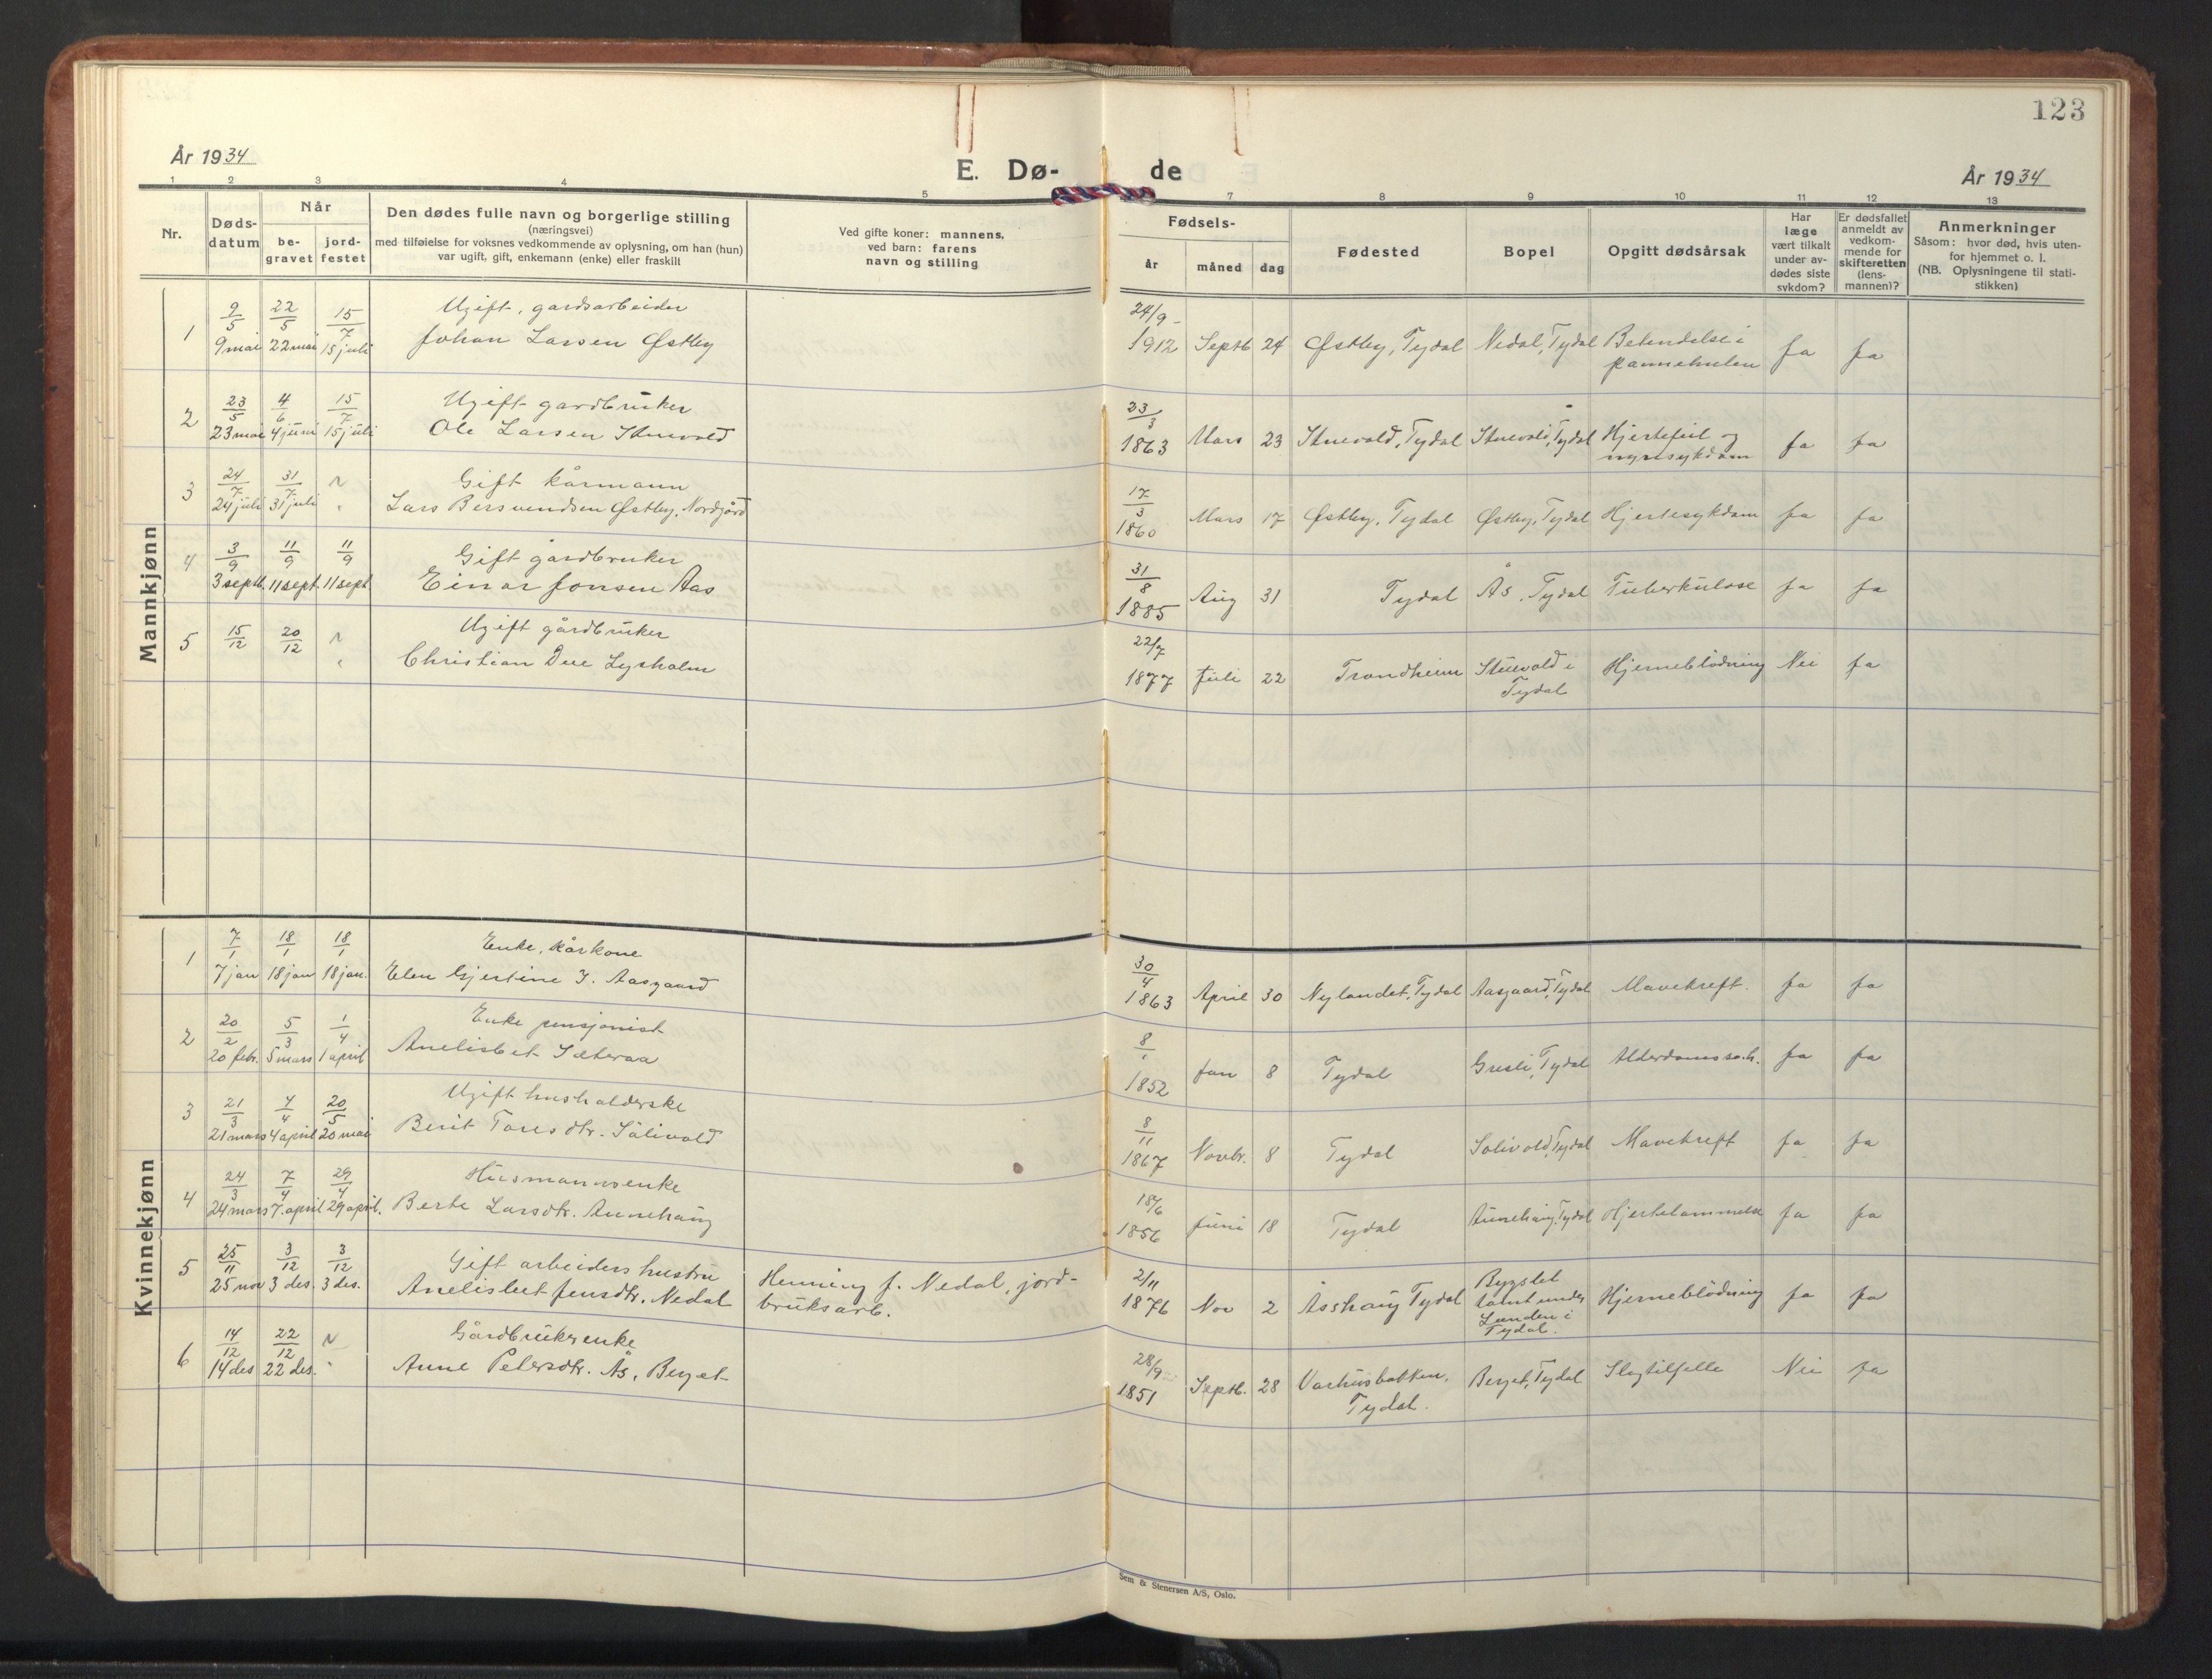 123
År 1934
E. Dø-
de
År 1934
1 2 3 4 5 7 8 9 10 11 12 13
Nr.
Døds-
datum
Når
be-
gravet
jord-
festet
Den dødes fulle navn og borgerlige stilling
(næringsvei)
med tilføielse for voksnes vedkommende av oplysning, om han (hun)
var ugift, gift, enkemann (enke) eller fraskilt
Ved gifte koner: mannens,
ved barn: farens
navn og stilling
Fødsels-
år måned dag
Fødested
Bopel
Opgitt dødsårsak
Har
læge
vært tilkalt
under av-
dødes siste
sykdom?
Er dødsfallet
anmeldt av
vedkom-
mende for
skifteretten
(lens-
mannen)?
Anmerkninger
Såsom: hvor død, hvis uten-
for hjemmet o. l.
(NB. Oplysningene til stati-
stikken)
Mannkjønn
9/5 22/5 15/7 Ugift, gardsarbeider 24/9-
1 9 mai 22 mai 15 juli Johan Larsen Østby 1912 Septb 24 Østby, Tydal Nedal, Tydal Betendelse i
pannehulen Ja Ja
23/5 4/6 15/7 Ugift gardbruker 23/3
2 23 mai 4 juni 15 juli Ole Larsen Stuevold 1863 Mars 23 Stuevold, Tydal Stuevold, Tydal Hjertefeil og
nyresykdom Ja Ja
24/7 31/7 Gift kårmann 17/3
3 24 juli 31 juli " Lars Bersvendsen Østby, Nordgård 1860 Mars 17 Østby, Tydal Østby, Tydal Hjertesykdom Ja Ja
3/9 11/9 11/9 Gift gårdbruker 31/8
4 3 septb. 11 sept. 11 sept Einar Jonsen Aas 1885 Aug 31 Tydal Ås, Tydal Tuberkulose Ja Ja
15/12 20/12 Ugift gårdbruker 22/7
5 " Christian Due Lysholm 1877 Juli 22 Trondheim Stuevold i
Tydal Hjerneblödning Nei Ja
Kvinnekjønn
7/1 18/1 18/1 Enke, kårkone 30/4
1 7 jan 18 jan 18 jan. Elen Gjertine J. Aasgaard 1863 April 30 Nylandet, Tydal Aasgaard, Tydal Mavekreft. Ja Ja
20/2 5/3 1/4 Enke pensjonist 8/1
2 20 febr. 5 mars 1 april Anelisbet Sæteraa 1852 Jan 8 Tydal Gresli, Tydal Ja Ja
21/3 4/4 20/5 Ugift husholderske 8/11
3 21 mars 4 april 20 mai Berit Toresdtr. Sölivold 1867 Novbr. 8 Tydal Solivold, Tydal Mavekreft Ja Ja
24/3 7/4 29/4 Husmannsenke 18/6
4 24 mars 7. april 29 april. Berte Larsdtr. Aunehaug 1856 Juni 18 Tydal Aunehaug, Tydal Hjertelammelse Ja Ja
25/11 3/12 3/12 Gift arbeiders hustru 2/11
5 25 nov 3 des. 3 des. Anelisbet Jensdtr. Nedal Henning J. Nedal, jord-
bruksarb. 1876 Nov 2 Åsshaug Tydal Bygslet
tomt under
Lunden i
Tydal. Hjerneblödning Ja Ja
14/12 22/12 Gårdbrukerenke 28/9
6 14 des 22 des. " Anne Petersdtr. Ås, Berget 1851 Septb. 28 Varhusbakken,
Tydal. Berget, Tydal Slagtilfelle Nei Ja
Sem & Stenersen A/S, Oslo.